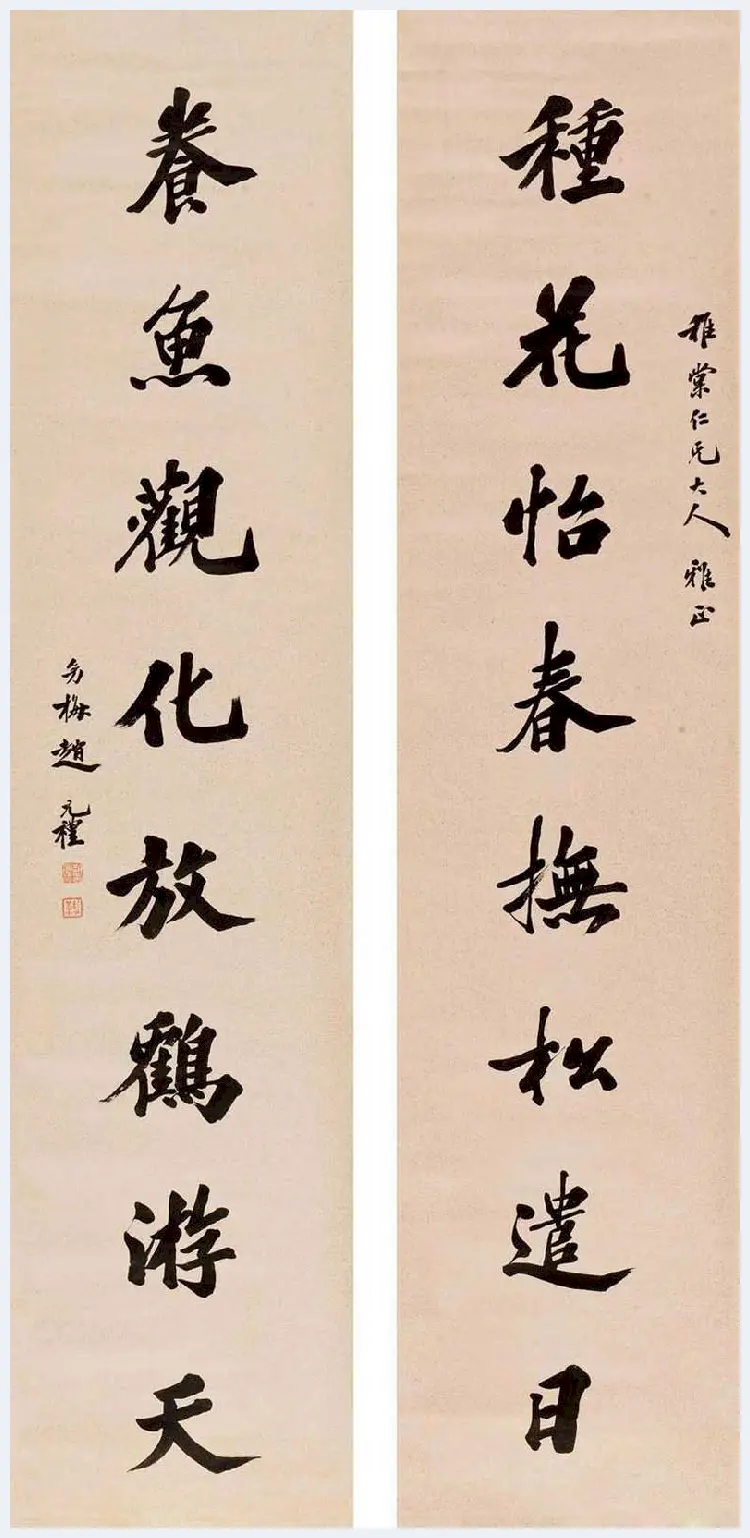 雅棠仁兄大人 雅正
種花怡春撫松遣日
養魚觀化放鶴游天
幼梅趙元禮